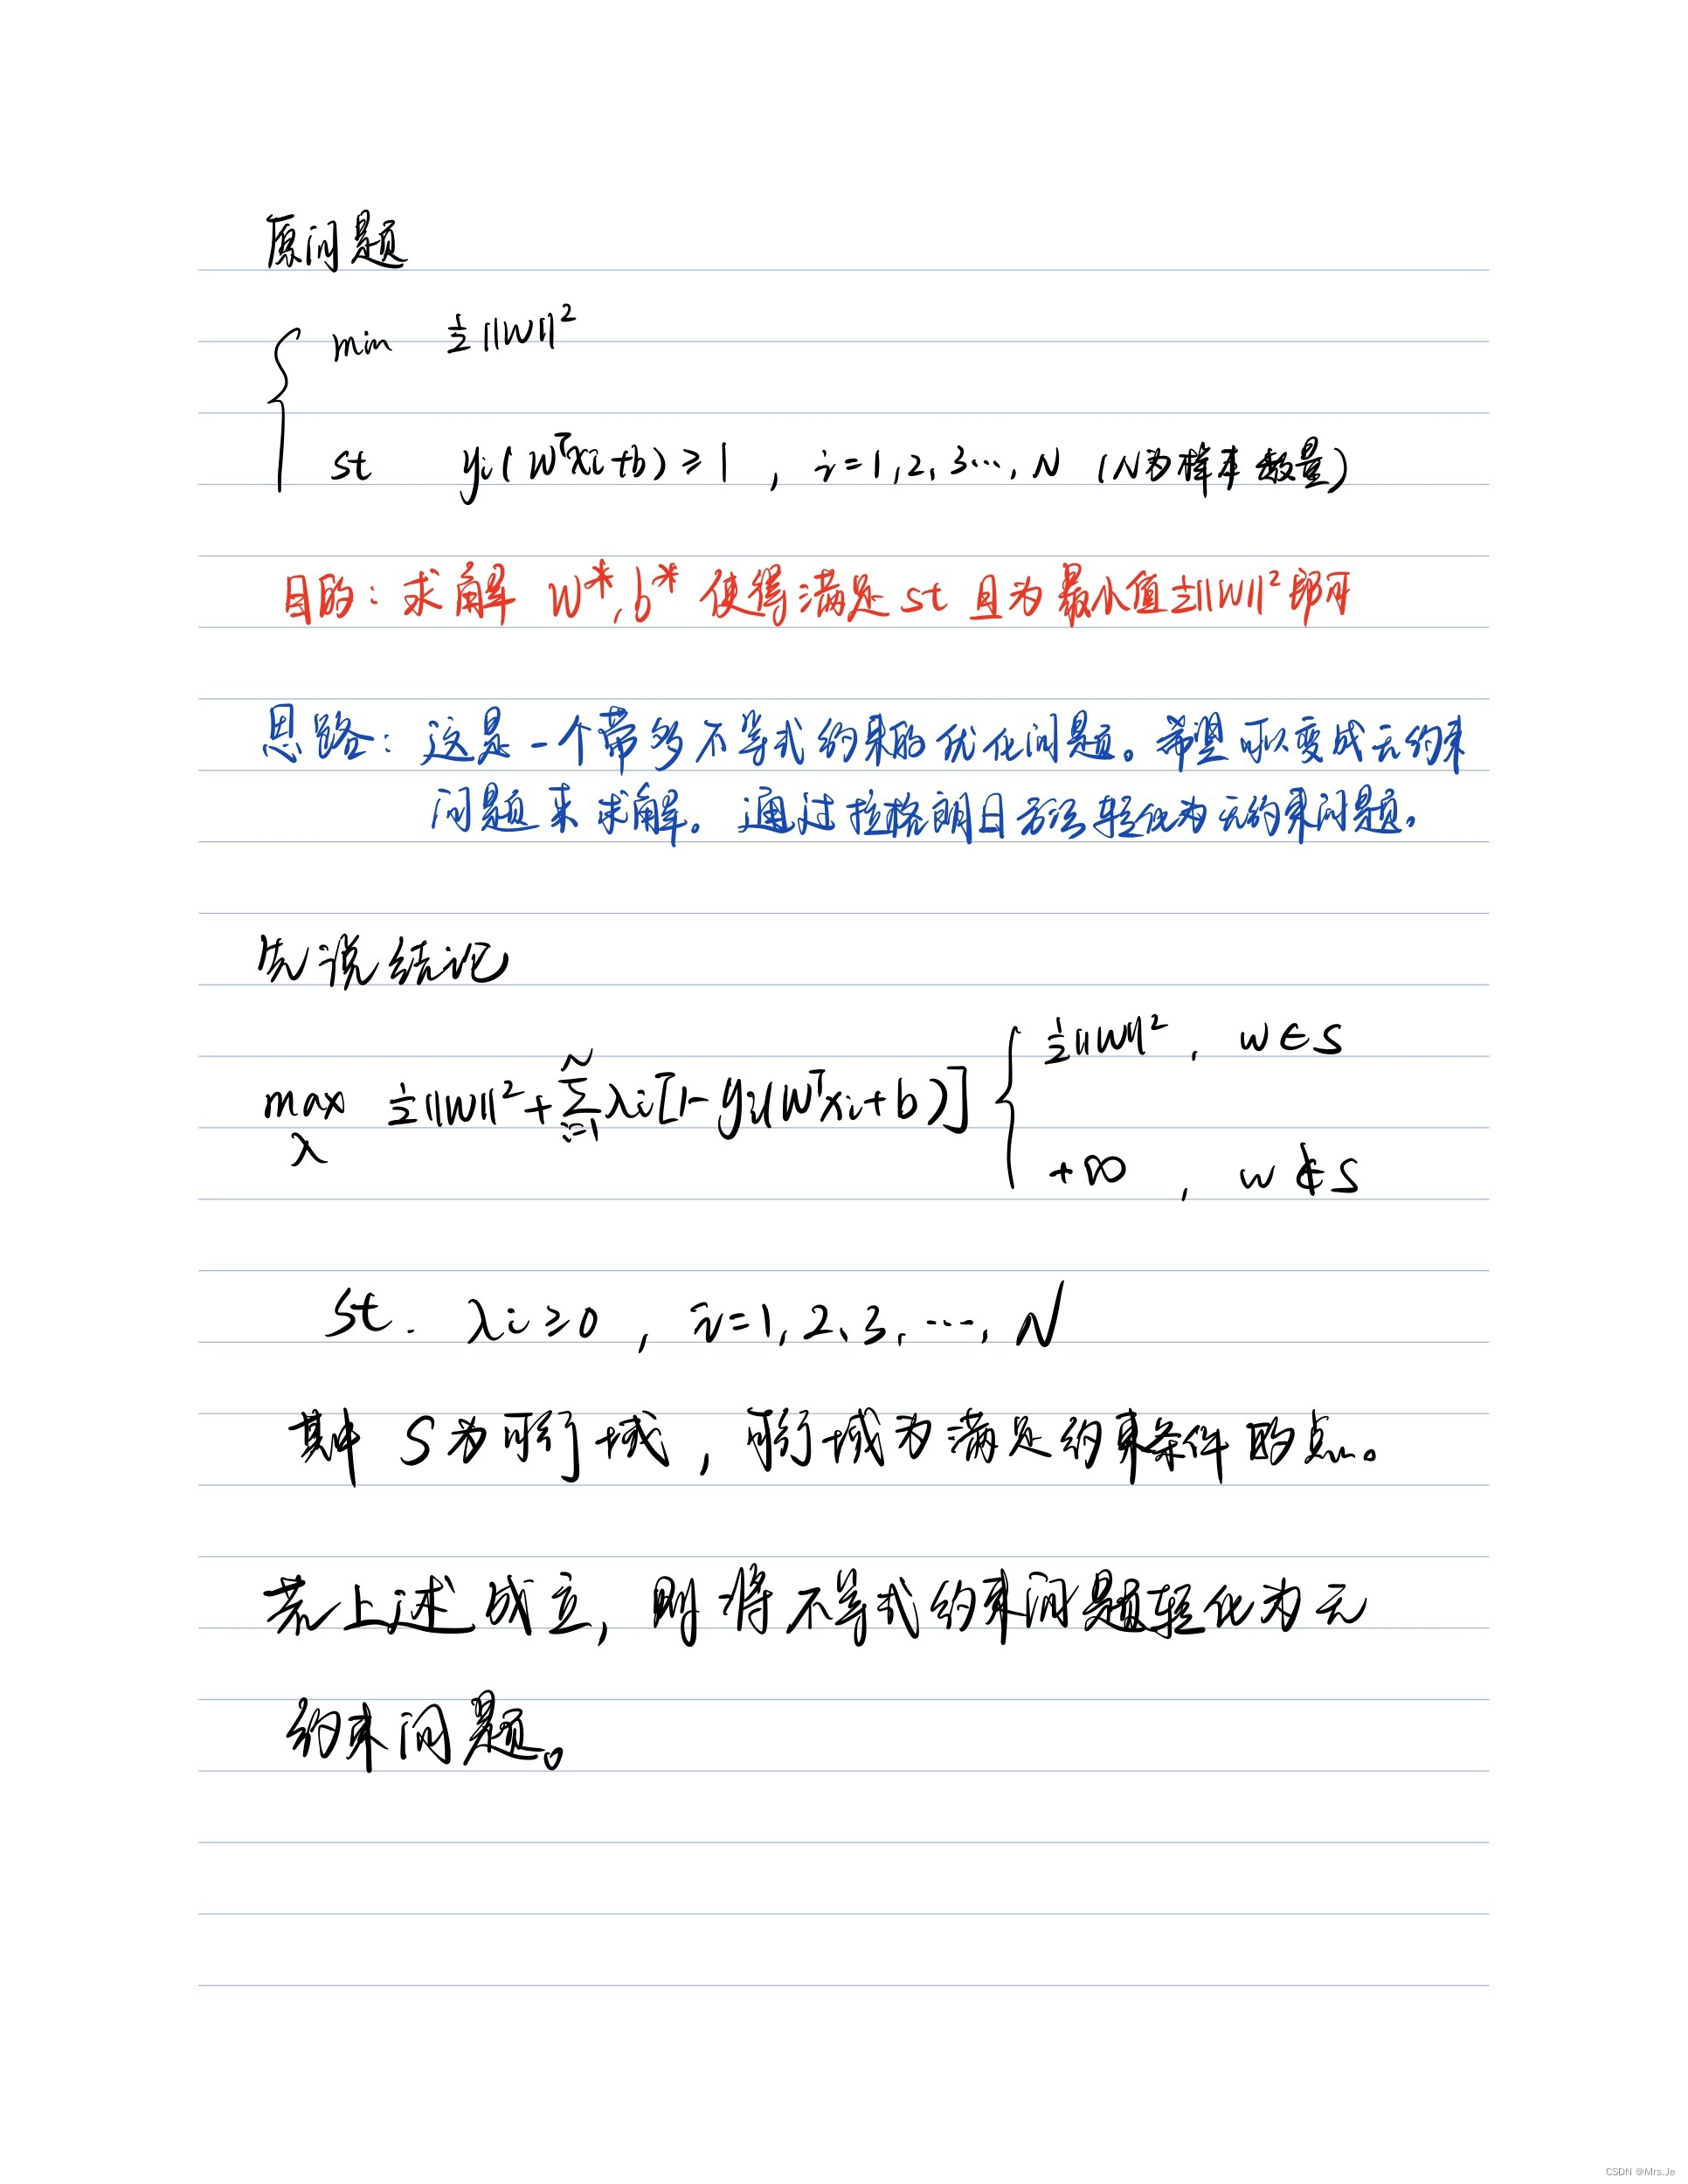 原问题
min ½||W||²
st yi(WᵀXi+b)≥1, i=1,2,3…,N (N为样本数量)
目的：求解 W*,b* 使得满足 st 且为最小值½||W||²即可
思路：这是一个带多不等式约束的优化问题。希望可以变成无约束
问题来求解。通过拉格朗日方法转化为无约束问题。
先说结论
max λ ½||W||²+∑ᵢ₌₁ᴺ λi[1-yi(WᵀXi+b)] { ½||W||², w∈S
+∞, w∉S
st. λi≥0, i=1,2,3,…,N
其中 S为可行域，可行域为满足约束条件的点。
若上述成立，则将不等式约束问题转化为无
约束问题。
CSDN @Mrs.Je